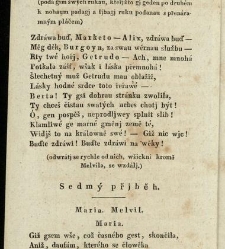 (podá gim swých rukau, kteřížto gj gedna po druhém
k nohaum padagj a ljbagj ruku podanau s přenára-
mným pláčem)
Zdráwa buď, Marketo — Alix, zdráwa buď —
Měg děk, Burgoyn, za swau wěrnau službu —
Rty twé hořj, Getrudo — Ach, mne mnohá
Potkala zášť, wšak i láska přemnohá!
Šlechetný muž Getrudu mau oblažiž,
Lásky hodné srdce toto žřawé —
Berta! Ty gsi dobrau stránku zwolila,
Ty choěs čistau swatých nebes chotj být!
O, gen pospěš, neprodlewey splnit slib!
Klamliwé ge marné gměnj země té,
Widjš to na králowně swé! — Giž nic wjc!
Buďte zdráwi! Buďte zdráwi na wěky!
(odwratj se rychle od nich, wšickni kromě
Melvila, se wzdálj.)
Sedmý přjběh.
Maria. Melvil.
Maria.
Giž gsem wše, což časného gest, skončila,
Aniž, doufám, kterého se člowěka